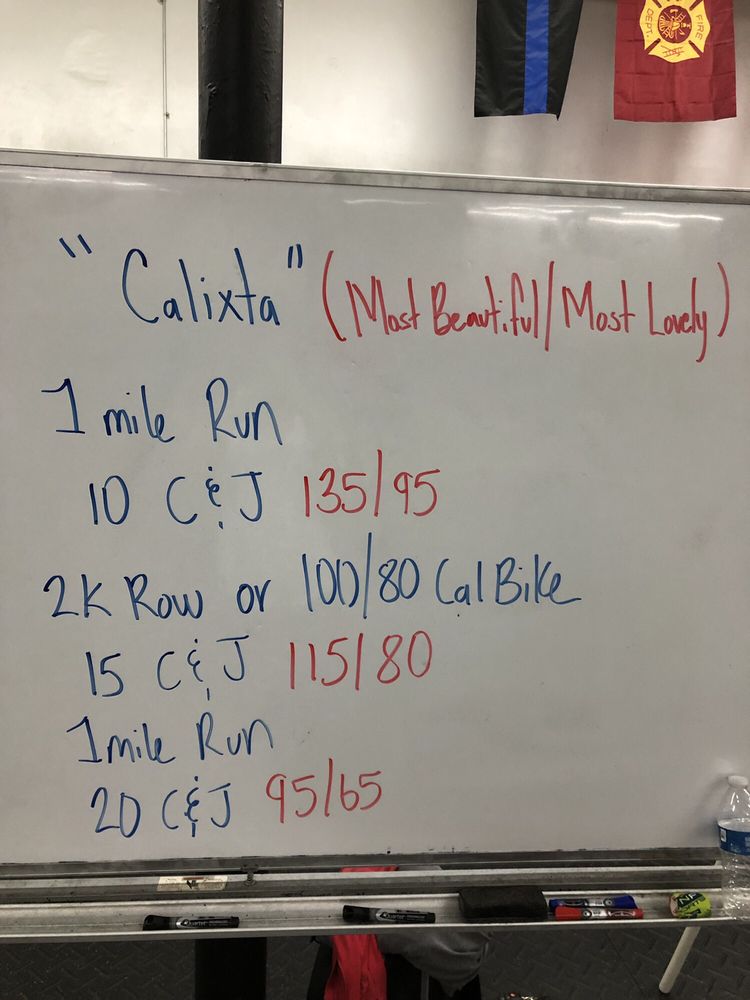 DEPT. FIRE
"Calixta" (Most Beautiful/Most Lovely)
1 mile Run
10 C&J 135/95
2K Row or 100/80 Cal Bike
15 C&J 115/80
1 mile Run
20 C&J 95/65